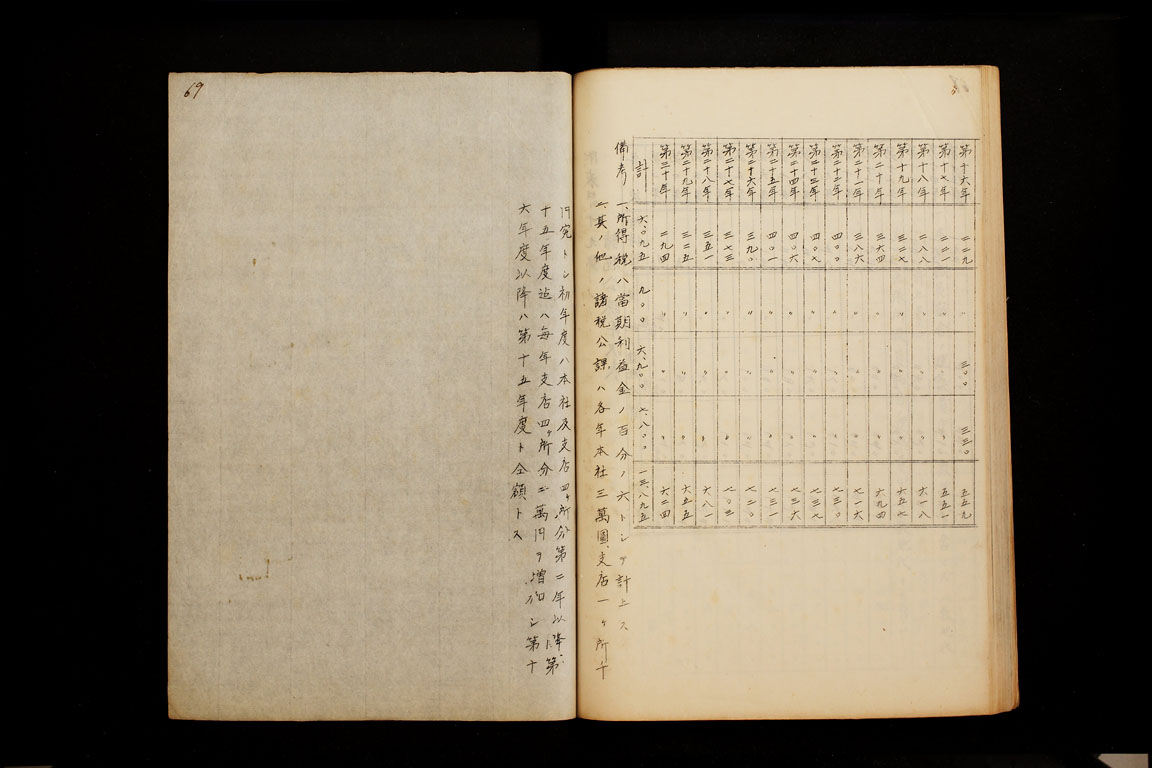 第十六年 二二九 〃 三〇〇 三三〇 五五九
第十七年 二二一 〃 〃 〃 五五一
第十八年 二八八 〃 〃 〃 六一八
第十九年 三二七 〃 〃 〃 六五七
第二十年 三六四 〃 〃 〃 六九四
第二十一年 三八六 〃 〃 〃 七一六
第二十二年 四〇〇 〃 〃 〃 七三〇
第二十三年 四〇七 〃 〃 〃 七三七
第二十四年 四〇六 〃 〃 〃 七三六
第二十五年 四〇一 〃 〃 〃 七三一
第二十六年 三九〇 〃 〃 〃 七二〇
第二十七年 三七三 〃 〃 〃 七〇三
第二十八年 三五一 〃 〃 〃 六八一
第二十九年 三二五 〃 〃 〃 六五五
第三十年 二九四 〃 〃 〃 六二四
計 六、〇九五 九〇〇 六、九〇〇 七、八〇〇 一三、八九五
備考 一、所得税ハ當期利益金ノ百分ノ六トシテ計上ス
二、其ノ他ノ諸税公課ハ各年本社三萬圓、支店一ヶ所千
円宛トシ初年度ハ本社及支店四ヶ所分第二年以降第
十五年度迄ハ毎年支店四ヶ所分萬円ヲ増加シ第十
六年度以降ハ第十五年度ト仝額トス
69